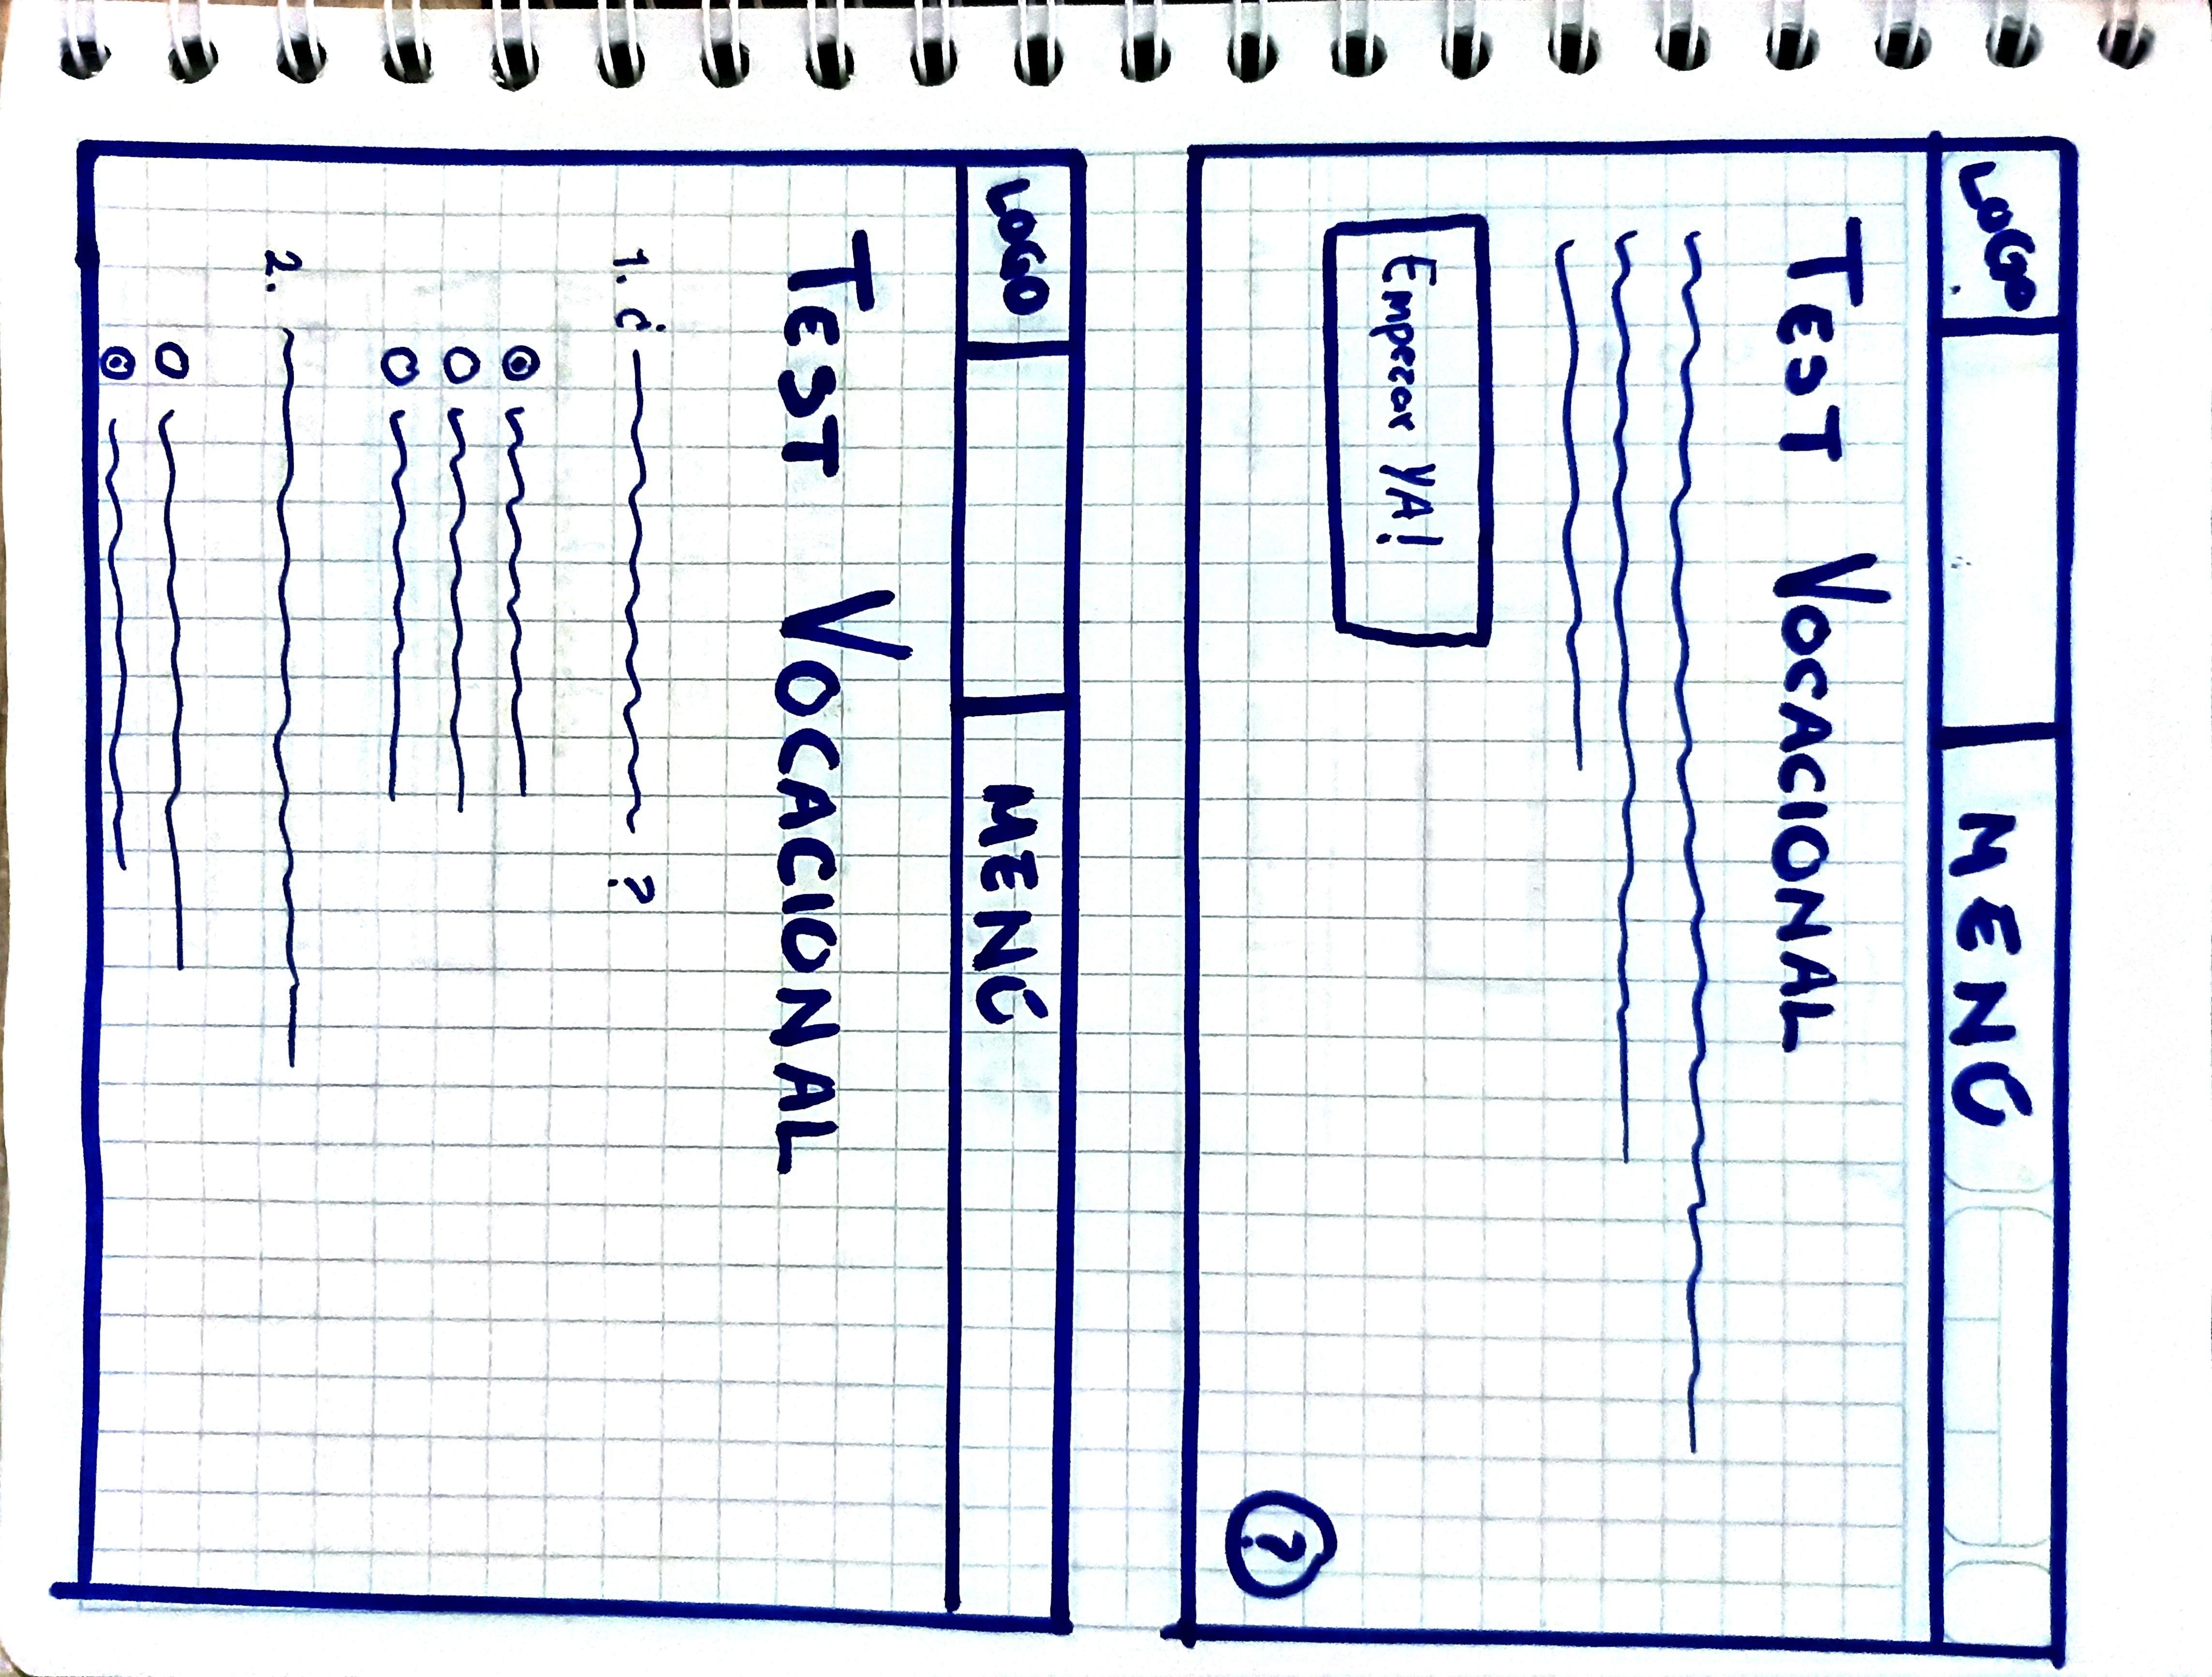 LOGO MENÚ
TEST VOCACIONAL
Empezar YA!
?
LOGO MENÚ
TEST VOCACIONAL
1. ¿ ?
2.